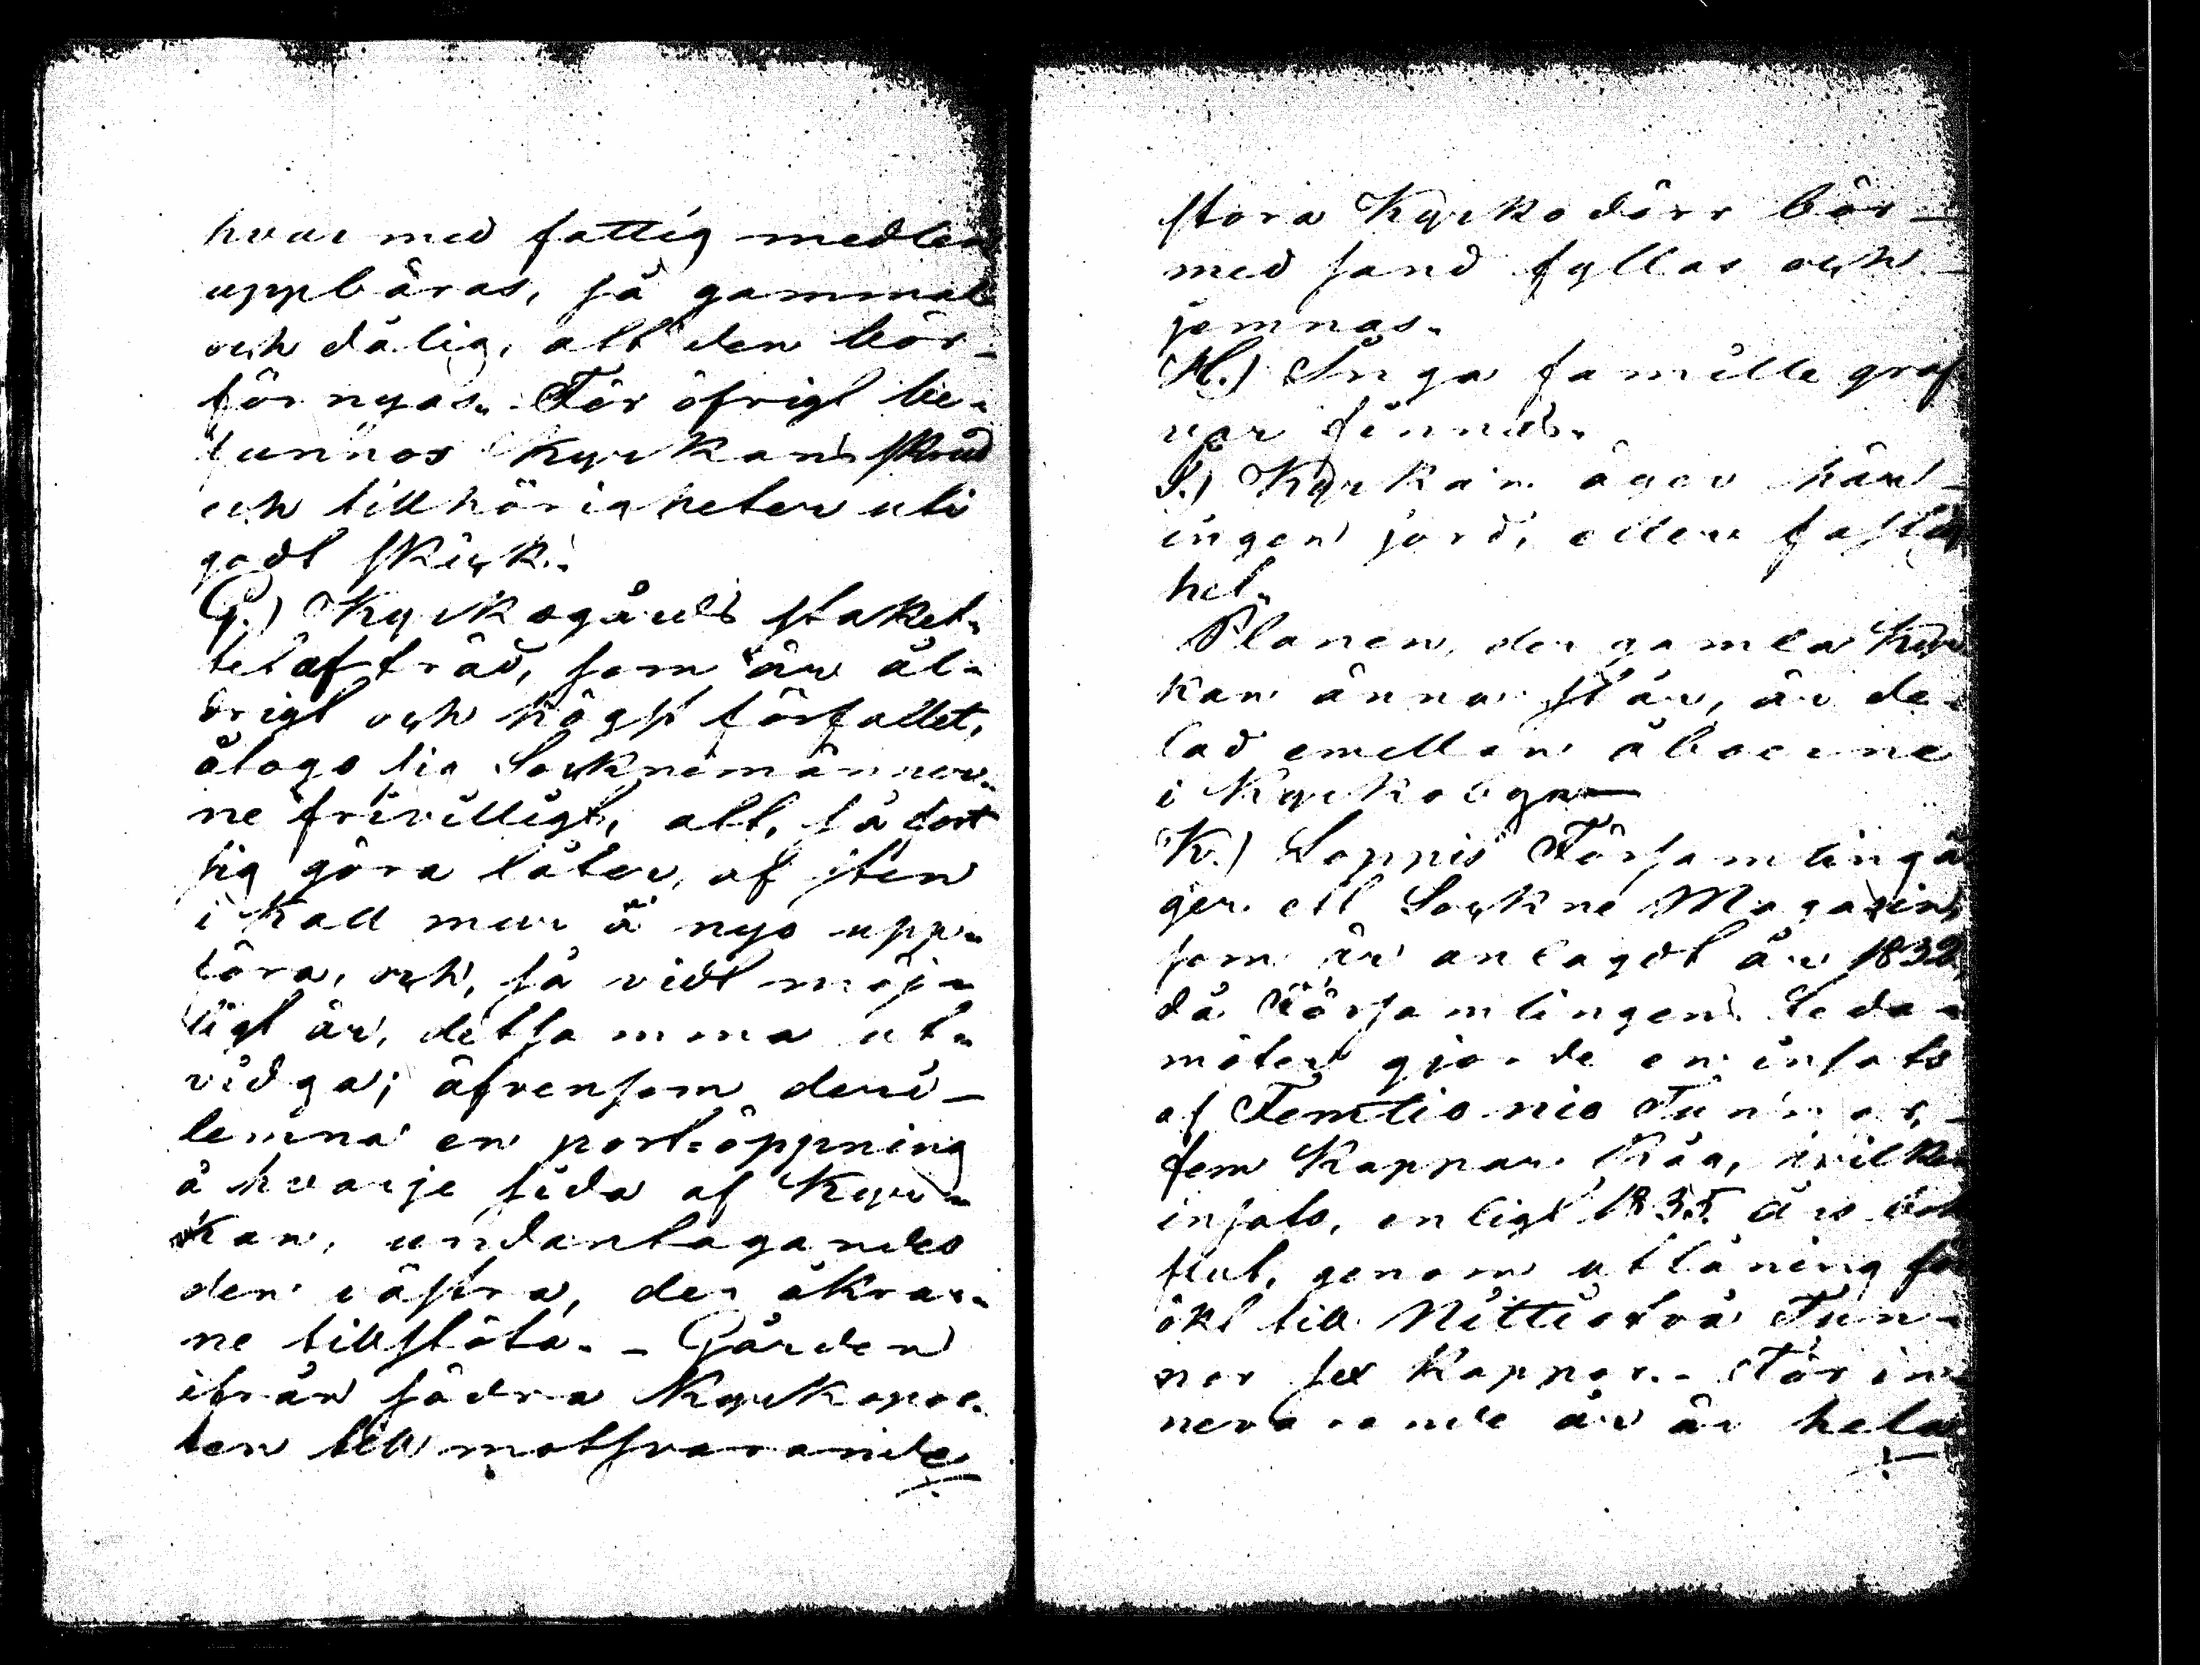 hvar med fattig medlen
uppbäras, så gammal
och dålig, att den bör
förnyas. För öfrigt be-
funnos Kyrkans skrud
och tillhörigheter uti
godt skick.
G.) Kyrkogårds staket-
tet af träd, som är ål-
drigt och högst förfallet,
åtogo sig Socknemänner-
ne frivilligt, att, så fort
sig göra låter, af sten
i kall mur å nyo upp-
föra, och, så vidt möj-
ligt är, detsamma ut-
vidga; äfvensom deri
lemna en port-öppning
å hvarje sida af Kyr-
kan, undantagandes
den västra, der åkrar-
ne tillstöta. - Gården
ifrån södra Kyrkopor-
ten till motsvarande
stora Kyrkodörr bör
med sand fyllas och
jemnas.
H.) Inga famille graf-
var finnas.
I.) Kyrkan äger här
ingen jord, eller fastig
het.
Planen, der gamla Kyr
kan ännu står, är de-
lad emellan åboerne
i Kyrkobyn
K.) Loppis Församling ä
ger ett Sockne Magasin,
som är anlagdt år 1832,
då Församlingens Leda-
möter gjorde en insats
af Femtio nio Tunnor,
fem Kappar Råg, hvilken
insats, enligt 1835 års bok
slut, genom utlåning för
ökt till Nittiotvå Tun-
nor sex Kappar. - För in-
nevarande år är hela